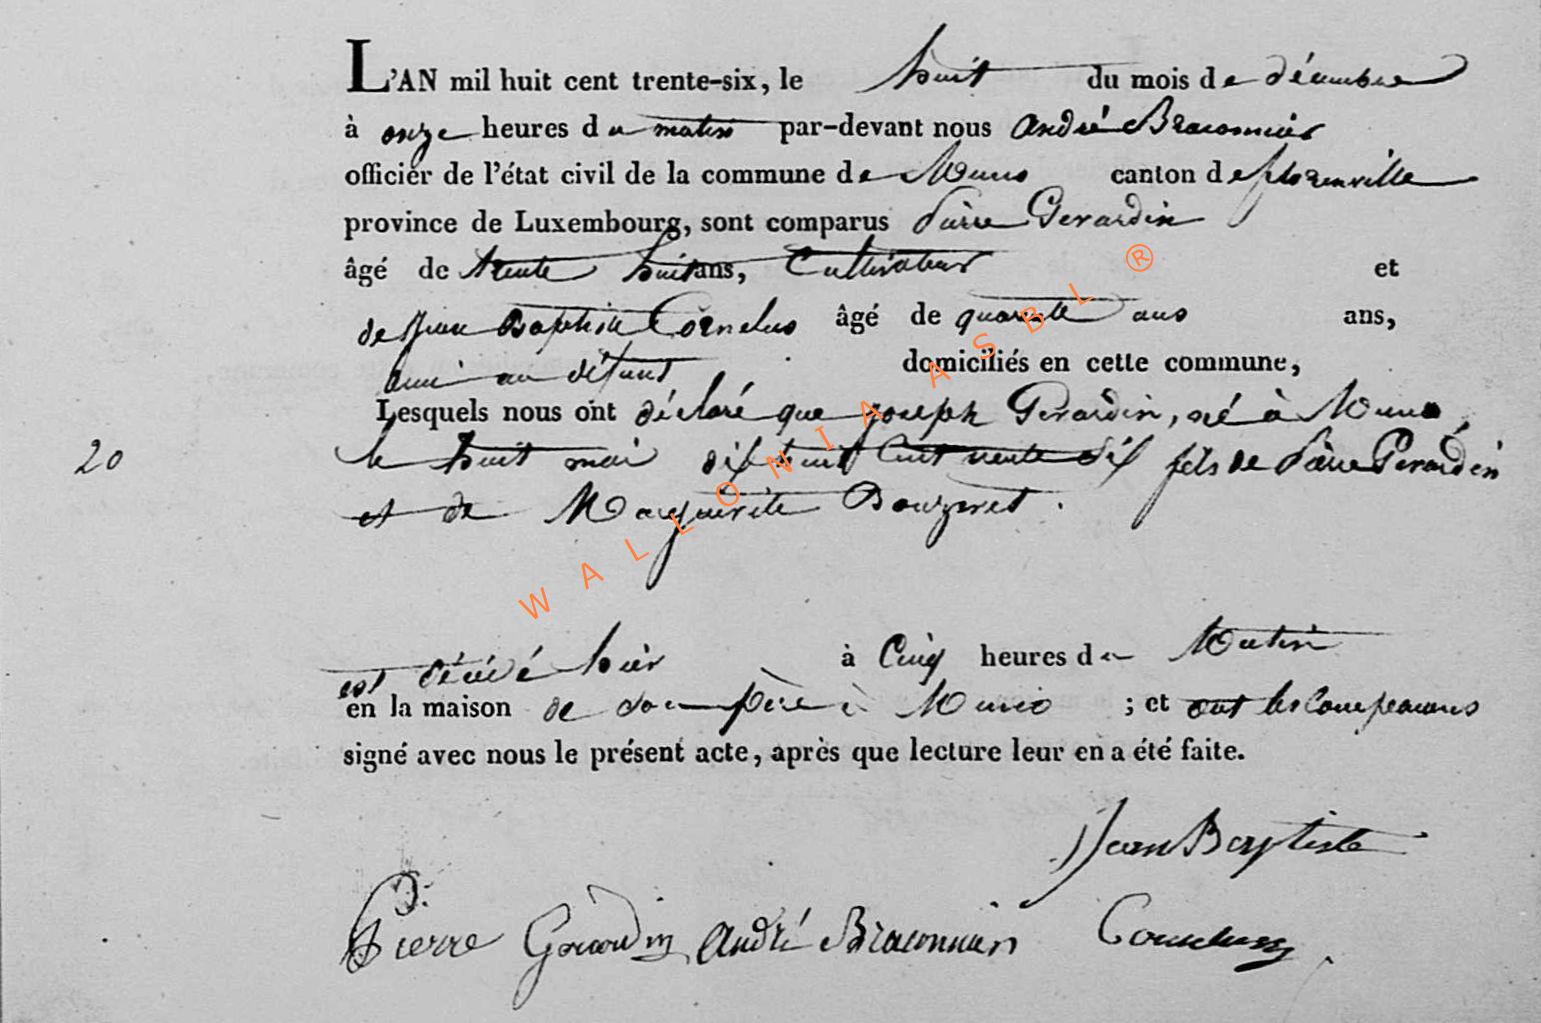 L'AN mil huit cent trente-six, le huit du mois de décembre
à onze heures du matin par-devant nous André Braconnier
officier de l'état civil de la commune de Muno canton de florenville
province de Luxembourg, sont comparus Pierre Gerardin
âgé de trente huit ans, Cultivateur et
de Jean Baptiste Cornelus âgé de quarante ans ans,
ami au défunt domiciliés en cette commune,
Lesquels nous ont déclaré que joseph Gerardin, né à Muno,
20
le huit mai dix huit Cent trente Six fils de Pierre Gerardin
et de Marguerite Bouzret.
est décédé hier à Cinq heures du Matin
en la maison de son père à Muno ; et ont les Comparants
signé avec nous le présent acte, après que lecture leur en a été faite.
Jean Baptiste
Pierre Gérardin André Braconnier
WALLONIA ASBL ®